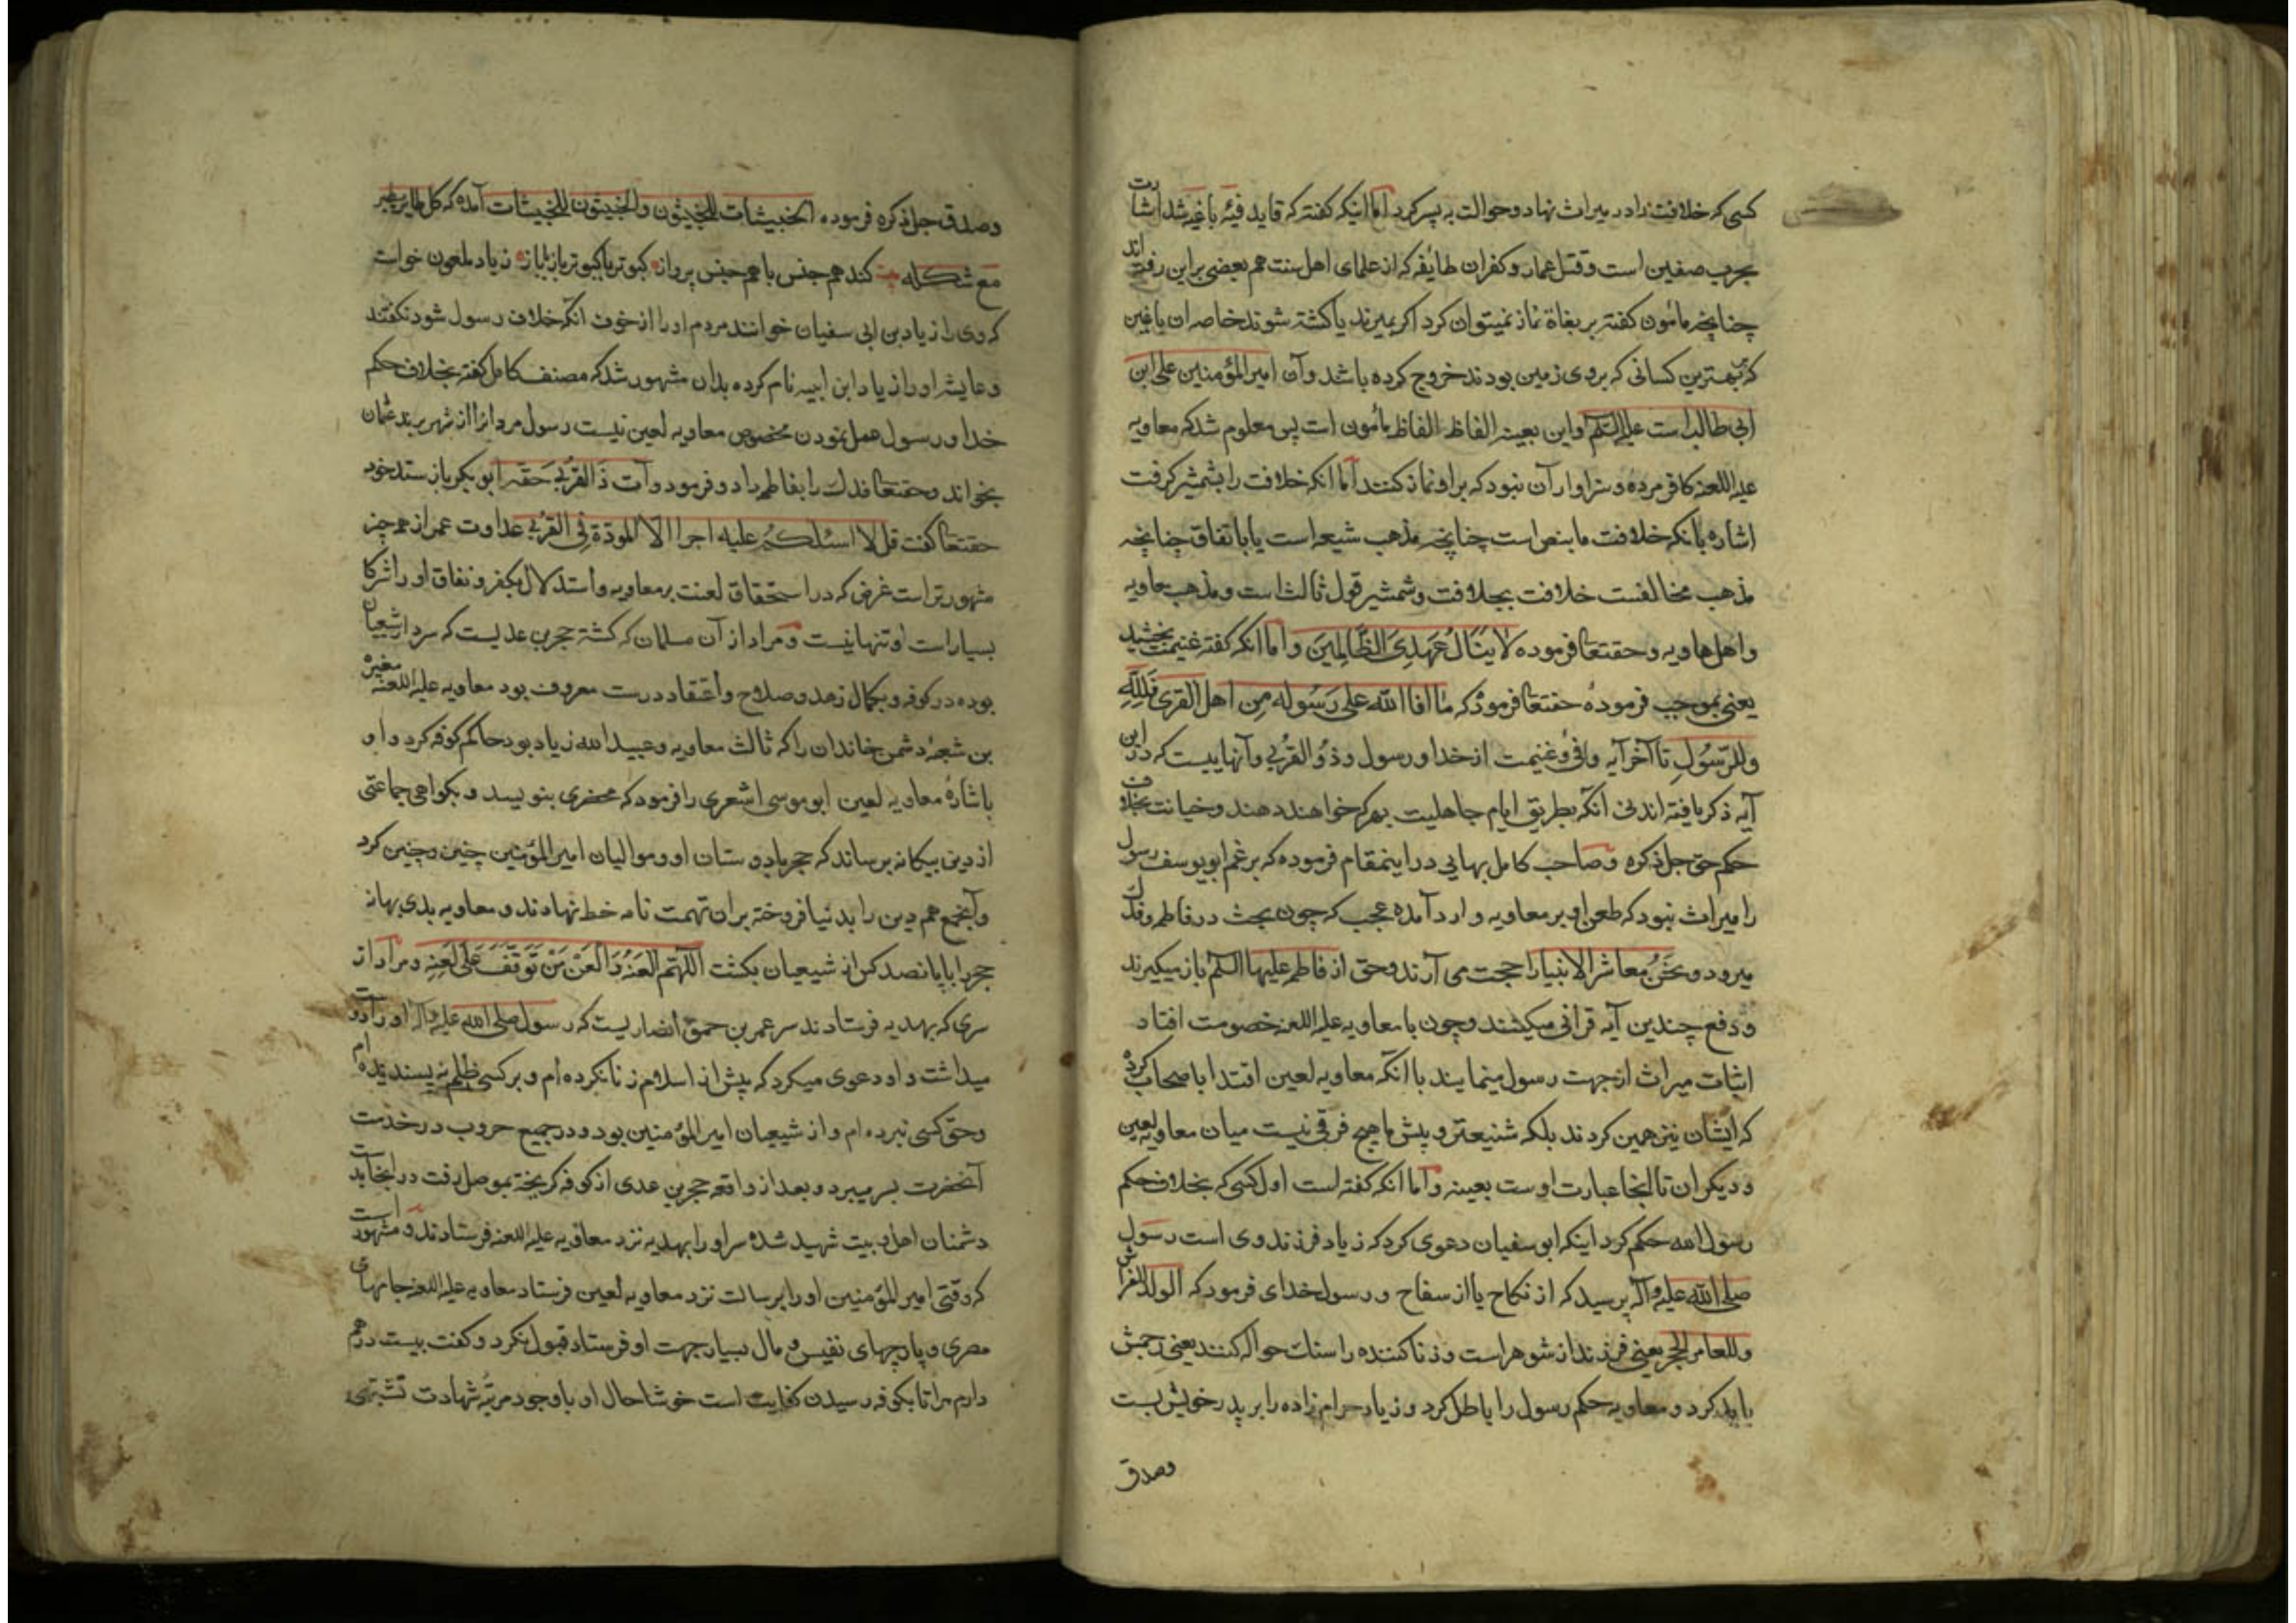 کسی که خلافت را در میراث نهاد و حوالت به پسر کرد اما اینکه گفته که قاید فیٔه باغیه شد اشارت
بحرب صفین است و قتل عمار و کفران طایفه که از علمای اهل سنت هم بعضی براین رفته‌اند
چنانچه مامون کفته بر بغاة نماز نمیتوان کرد اکر بمیرند یا کشته شوند خاصه ان باغین
که بر بهترین کسانی که بروی زمین بودند خروج کرده باشد و آن امیرالمؤمنین علی ابن
ابی طالب است علیه السلام و این بعینه الفاظ الفاظ مأمون است پس معلوم شد که معاویه
علیه اللعنه کافر مرده و سزاوار آن نبود که براو نماز کنند اما انکه خلافت را بشمشیر کرفت
اشاره بانکه خلافت ما بنص است چنانچه مذهب شیعه است یا باتفاق چنانچه
مذهب مخالفست خلافت بجلافت و شمشیر قول ثالث است و مذهب معاویه
و اهل هاویه و حقتعا فرموده لا ینال عهدی الظالمین و اما انکه کفته غنیمت بخشید
یعنی بموجب فرمودهٔ حقتعا فرموده که ما افاالله علی رسوله من اهل القری فلله
وللرسول تا آخر آیه و فی و غنیمت از خدا و رسول و ذو القربی و آنهاییست که در این
آیه ذکر یافته‌اند نی آنکه بطریق ایام جاهلیت بهر که خواهند دهند و خیانت بخلاف
حکم حق جل ذکره و صاحب کامل بهایی در اینمقام فرموده که برغم ابویوسف رسول
را میراث نبود که طعن او بر معاویه وارد آمده عجب که چون بحث در فاطمه و فدک
میرود و نحن معاشر الانبیا را حجت می آرند و حق از فاطمه علیها السلام باز میکیرند
و دفع چندین آیه قرانی میکنند و چون با معاویه علیه اللعنه خصومت افتاد
اثبات میراث از جهت رسول مینمایند با انکه معاویه لعین اقتدا باصحاب کرده
که ایشان نیز همین کردند بلکه شنیعتر و پیش ما هیچ فرقی نیست میان معاویه لعین
و دیکران تا اینجا عبارت اوست بعینه و اما انکه کفته است اول کسی که بخلاف حکم
رسول الله حکم کرد اینکه ابو سفیان دعوی کرد که زیاد فرزند وی است رسول
صلی الله علیه و آله پرسید که از نکاح یا از سفاح و رسول خدای فرمود که الولد للفراش
وللعاهر الحجر یعنی فرزند از شوهر است و زنا کننده را سنک حواله کنند یعنی رجمش
باید کرد و معاویه حکم رسول را باطل کرد و زیاد حرام زاده را بر پدر خویش بست
وصدق
وصدق جل ذکره فرموده الخبیثات للخبیثون والخبیثون للخبیثات آمده که کل طایر یطیر
مع شکله کند هم جنس با هم جنس پرواز کبوتر با کبوتر باز با باز زیاد ملعون خواست
که وی را زیاد بن ابی سفیان خوانند مردم او را از خوف آنکه خلاف رسول شود نکفتند
و عایشه او را زیاد ابن ابیه نام کرده بدان مشهور شد که مصنف کامل کفته بخلاف حکم
خدا و رسول عمل نمودن مخصوص معاویه لعین نیست رسول مروانرا از شهر بر بند عثمان
بخواند و حقتعا فدک را بفاطمه داد و فرمود وآت ذا القربی حقه ابو بکر باز ستد خود
حقتعا کفت قل لا اسئلکم علیه اجرا الا المودة فی القربی عداوت عمر از همه چیز
مشهورتر است غرض که در استحقاق لعنت بر معاویه و استدلال بکفر و نفاق او را شرکا
بسیار است او تنها نیست و مراد از آن مسلمان که کشته حجر بن عدیست که سردار شیعیان
بوده در کوفه و بکمال زهد و صلاح و اعتقاد درست معروف بود معاویه علیه اللعنه مغیره
بن شعبهٔ دشمن خاندان را که ثالث معاویه و عبیدالله زیاد بود حاکم کوفه کرد و او
باشارهٔ معاویه لعین ابو موسی اشعری را فرمود که محضری بنویسد و بکواهی جماعتی
از دین بیکانه برساند که حجر با دوستان او و موالیان امیرالمؤمنین چنین و چنین کرد
و آنجمع هم دین را بدنیا فروخته بران تهمت نامه خط نهادند و معاویه بدی بهانه
حجر را با پانصد کس از شیعیان بکشت اللهم العنه والعن من توقف علی لعنه و مراد از
سری که بهدیه فرستادند سر عمر بن حمق انصاریست که رسول صلی الله علیه وآله او را دوست
میداشت و او دعوی میکرد که پیش از اسلام زنا نکرده ام و بر کسی ظلم نپسندیده‌ام
و حق کسی نبرده‌ام و از شیعیان امیر المؤمنین بود و در جمیع حروب در خدمت
آنحضرت بسر میبرد و بعد از واقعه حجر بن عدی از کوفه کریخته بموصل رفت در انجا بدست
دشمنان اهل بیت شهید شده سر او را بهدیه نزد معاویه علیه اللعنه فرستادند و مشهور است
که وقتی امیر المؤمنین او را برسالت نزد معاویه لعین فرستاد معاویه علیه اللعنه جامهای
مصری و پارچهای نفیس و مال بسیار جهت او فرستاد قبول نکرد و کفت بیست درهم
دارم مرا تا بکوفه رسیدن کفایت است خوشا حال او با وجود مرتبهٔ شهادت